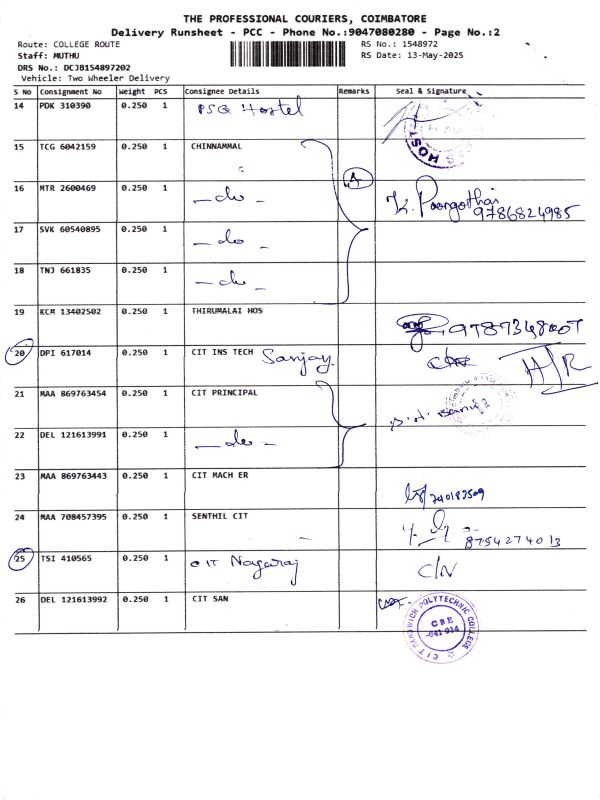 THE PROFESSIONAL COURIERS, COIMBATORE
Delivery Runsheet - PCC - Phone No.:9047080280 - Page No.:2
Route: COLLEGE ROUTE RS No.: 1548972
Staff: MUTHU RS Date: 13-May-2025
DRS No.: DCJB154897202
Vehicle: Two Wheeler Delivery
S No Consignment No Weight PCS Consignee Details Remarks Seal & Signature
14 PDK 310390 0.250 1 PSG Hostel
HOST
15 TCG 6042159 0.250 1 CHINNAMMAL
16 MTR 2600469 0.250 1 -do- K. Poongothai
9786824985
17 SVK 60540895 0.250 1 -do-
18 TNJ 661835 0.250 1 -do-
19 KCM 13402502 0.250 1 THIRUMALAI HOS
20 DPI 617014 0.250 1 CIT INS TECH Sanjay
21 MAA 869763454 0.250 1 CIT PRINCIPAL
22 DEL 121613991 0.250 1 -do-
23 MAA 869763443 0.250 1 CIT MACH ER
24 MAA 708457395 0.250 1 SENTHIL CIT
8754274013
25 TSI 410565 0.250 1 CIT Nagaraj C/N
26 DEL 121613992 0.250 1 CIT SAN
CIT SANDWICH POLYTECHNIC COLLEGE
CBE
-641 014